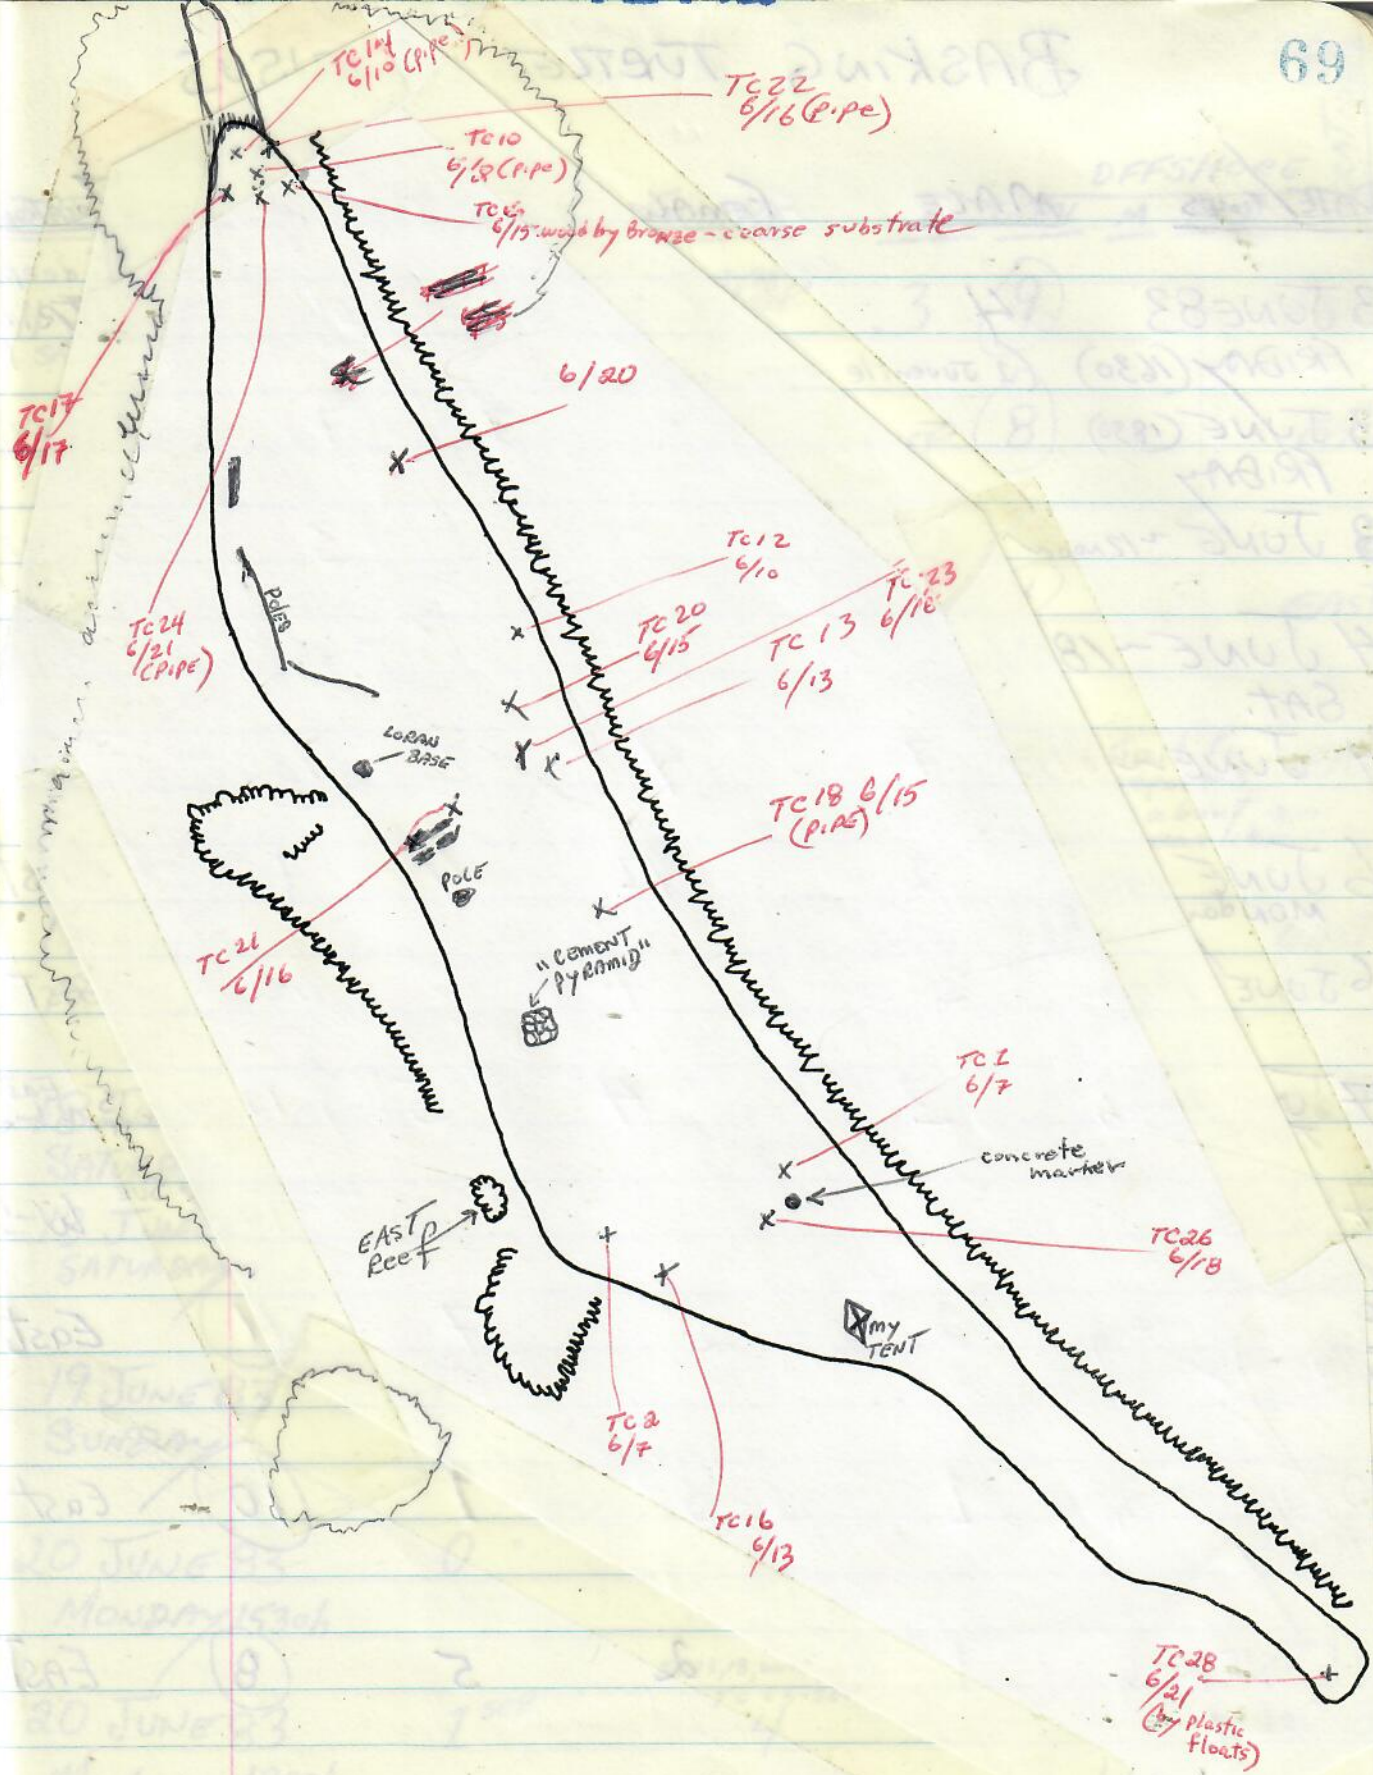 69
TC14
6/10 (pipe)
TC22
6/16 (pipe)
TC10
6/8 (pipe)
6/15 by Bronze - coarse substrate
TC17
6/17
6/20
TC12
6/10
TC23
6/18
TC20
6/15
TC13
6/13
TC24
6/21
(PIPE)
POLES
LORAN
BASE
TC18 6/15
(PIPE)
POLE
TC21
6/16
"CEMENT
PYRAMID"
TC1
6/7
concrete
marker
TC26
6/18
EAST
Reef
MY
TENT
TC2
6/7
TC16
6/13
TC28
6/21
(by plastic
floats)